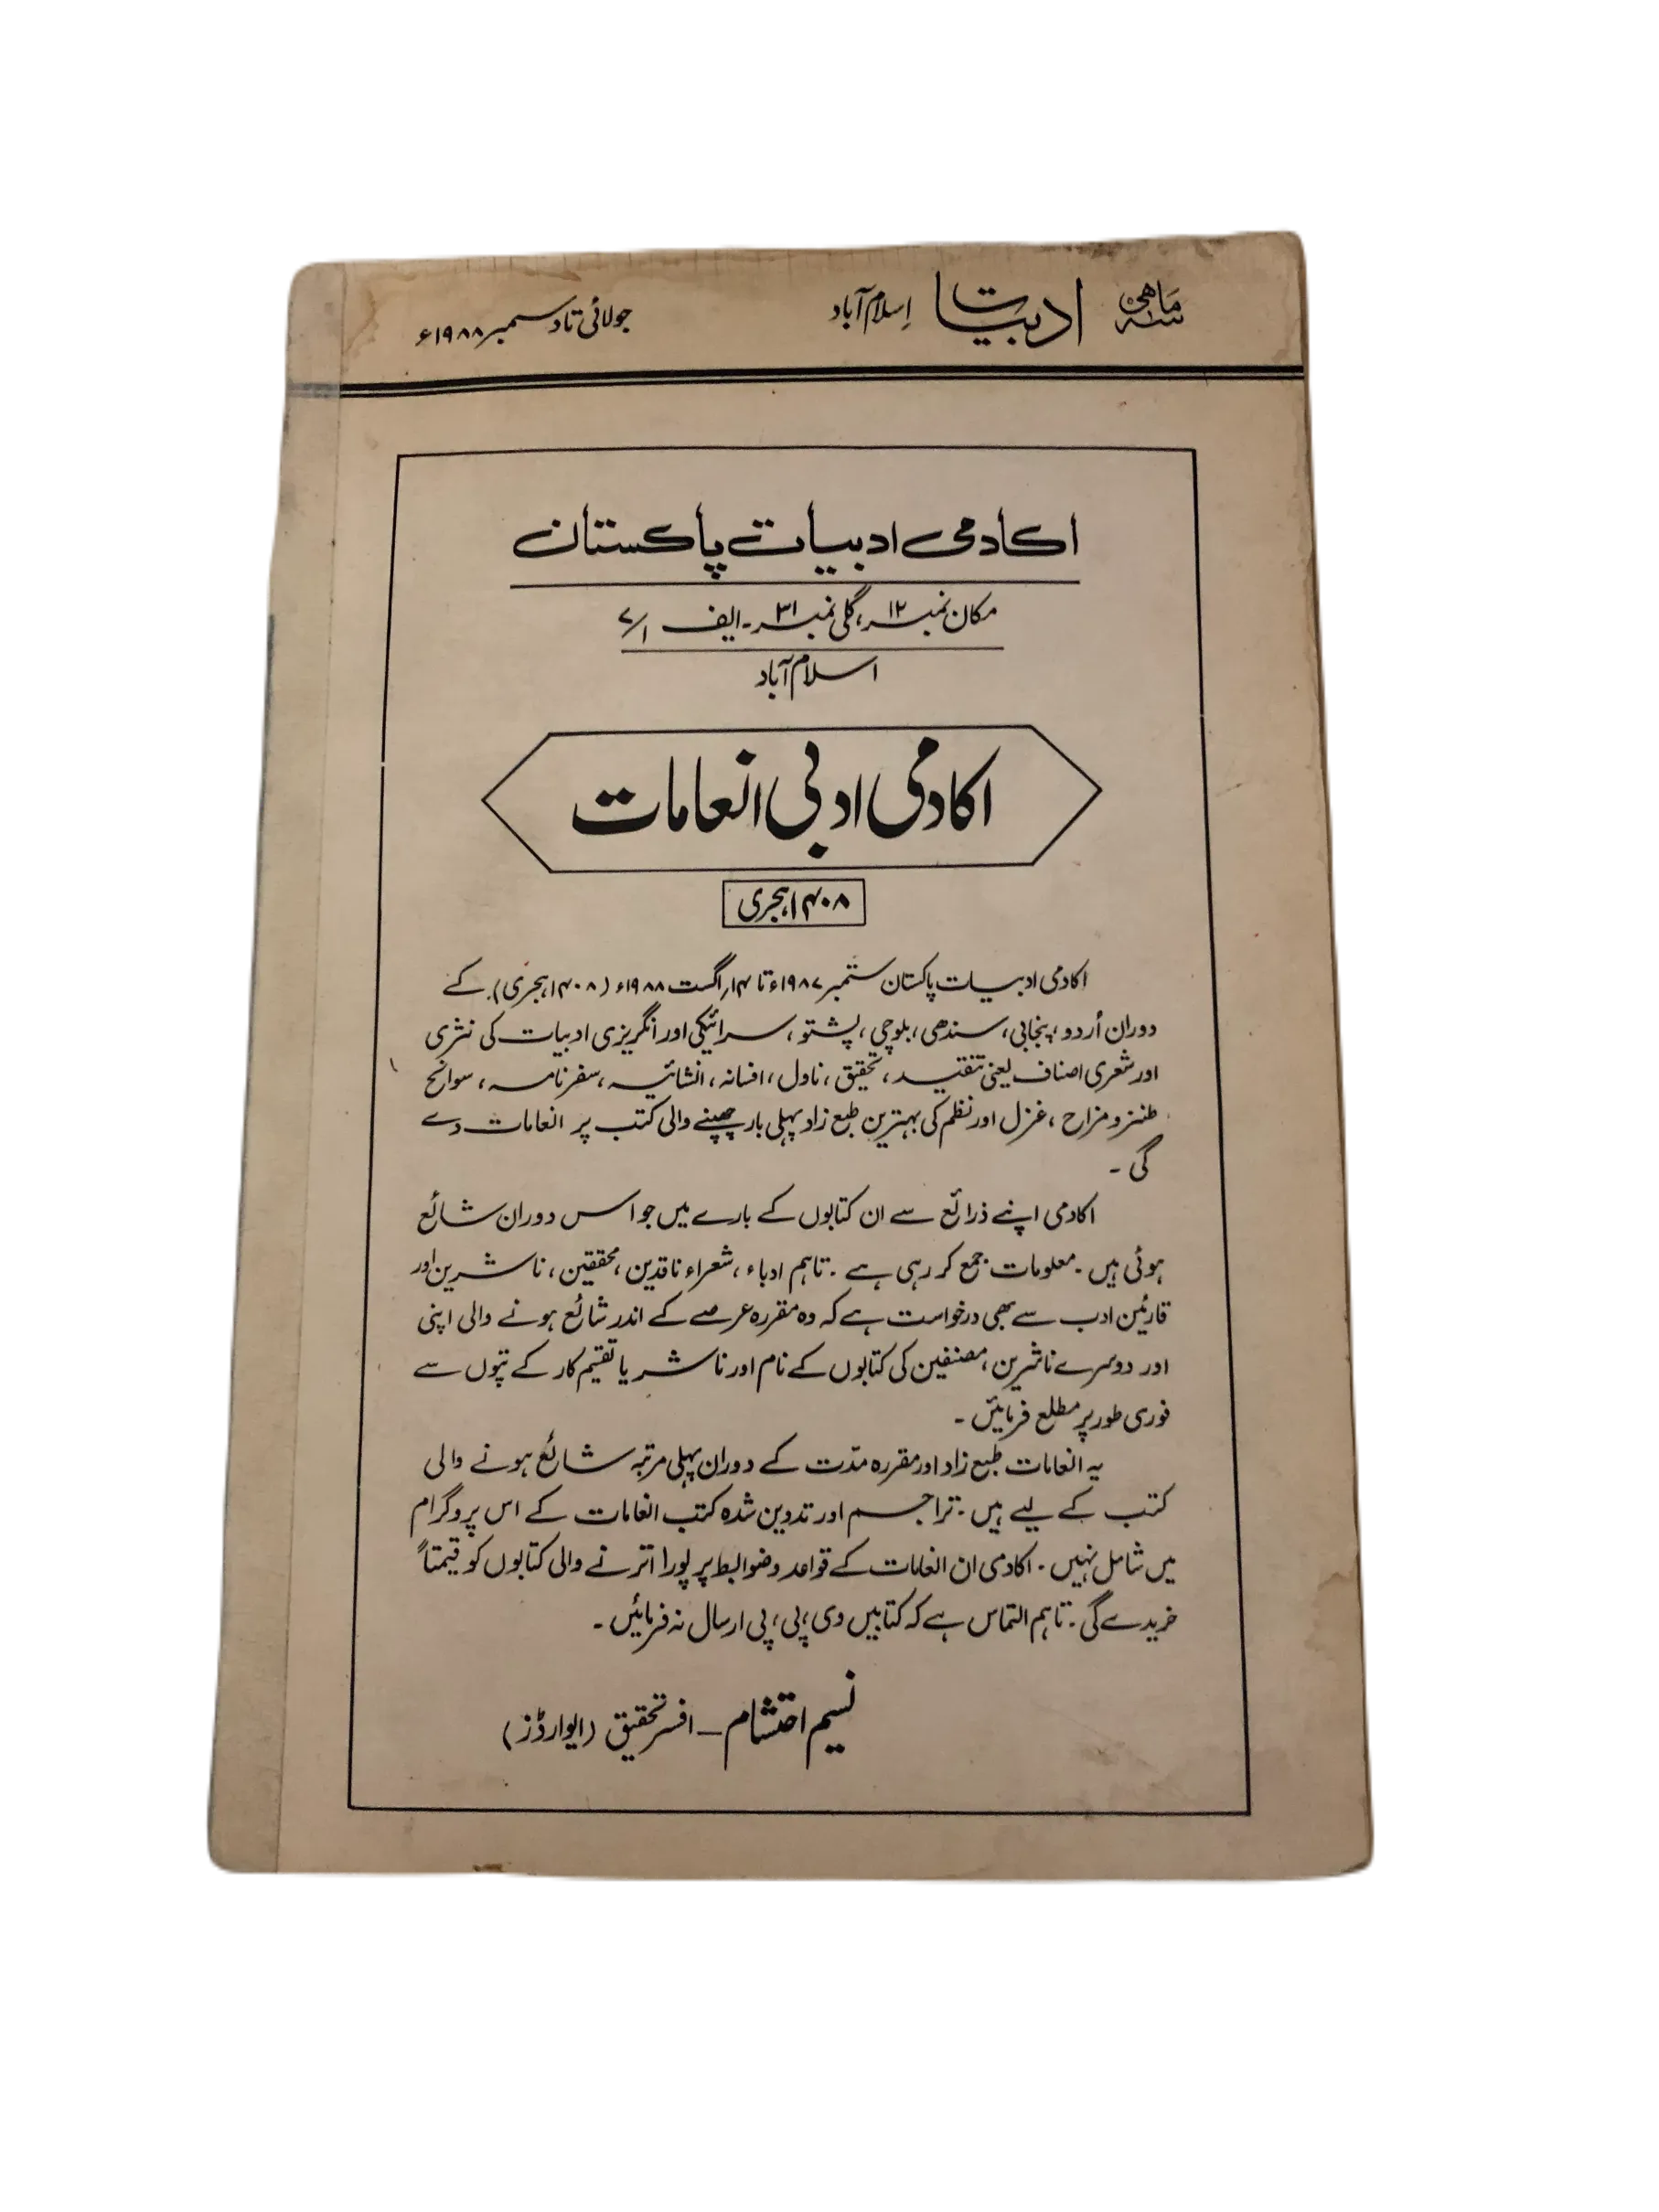 سہ ماھی ادبیات اسلام آباد جولائی تا دسمبر ۱۹۸۸ء
اکادمی ادبیات پاکستان
مکان نمبر ۱۲، گلی نمبر ۳۱۔ ایف ۷/۱
اسلام آباد
اکادمی ادبی انعامات
۱۴۰۸ ہجری
اکادمی ادبیات پاکستان ستمبر ۱۹۸۷ء تا ۱۴ر اگست ۱۹۸۸ء (۱۴۰۸ ہجری) کے
دوران اُردو، پنجابی، سندھی، بلوچی، پشتو، سرائیکی اور انگریزی ادبیات کی نثری
اور شعری اصناف یعنی تنقید، تحقیق، ناول، افسانہ، انشائیہ، سفرنامہ، سوانح
طنز و مزاح، غزل اور نظم کی بہترین طبع زاد پہلی بار چھپنے والی کتب پر انعامات دے
گی۔
اکادمی اپنے ذرائع سے ان کتابوں کے بارے میں جو اس دوران شائع
ہوئی ہیں۔ معلومات جمع کر رہی ہے۔ تاہم ادباء، شعراء ناقدین، محققین، ناشرین اور
قارئین ادب سے بھی درخواست ہے کہ وہ مقررہ عرصے کے اندر شائع ہونے والی اپنی
اور دوسرے ناشرین، مصنفین کی کتابوں کے نام اور ناشر یا تقیم کار کے پتوں سے
فوری طور پر مطلع فرمائیں۔
یہ انعامات طبع زاد اور مقررہ مدّت کے دوران پہلی مرتبہ شائع ہونے والی
کتب کے لیے ہیں۔ تراجم اور تدوین شدہ کتب انعامات کے اس پروگرام
میں شامل نہیں۔ اکادمی ان انعامات کے قواعد و ضوابط پر پورا اترنے والی کتابوں کو قیمتاً
خریدے گی۔ تاہم التماس ہے کہ کتابیں وی، پی، پی ارسال نہ فرمائیں۔
نسیم احتشام – افسر تحقیق (ایوارڈز)